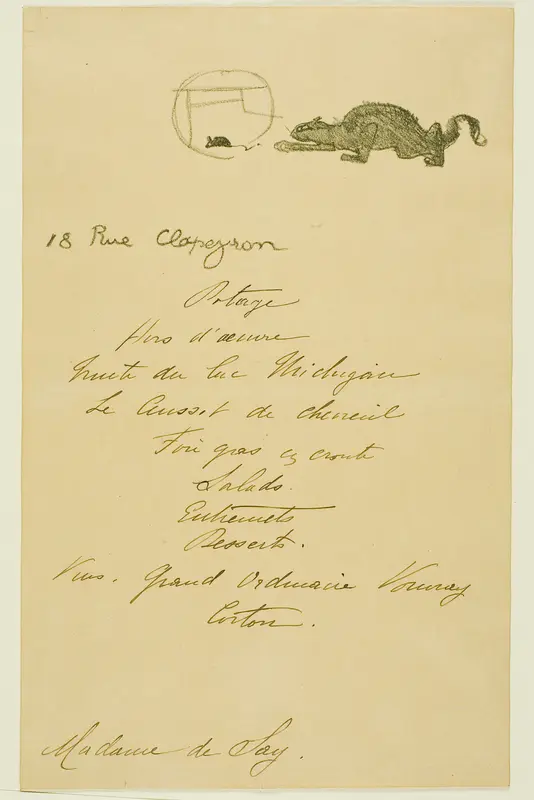 18 Rue Clapeyron
Potage
Hors d'oeuvre
Truite du lac Michigan
Le Cuissot de chevreuil
Foie gras en croute
Salade.
Entremets
Desserts.
Vins. Grand Ordinaire Vouvray
Corton.
Madame de